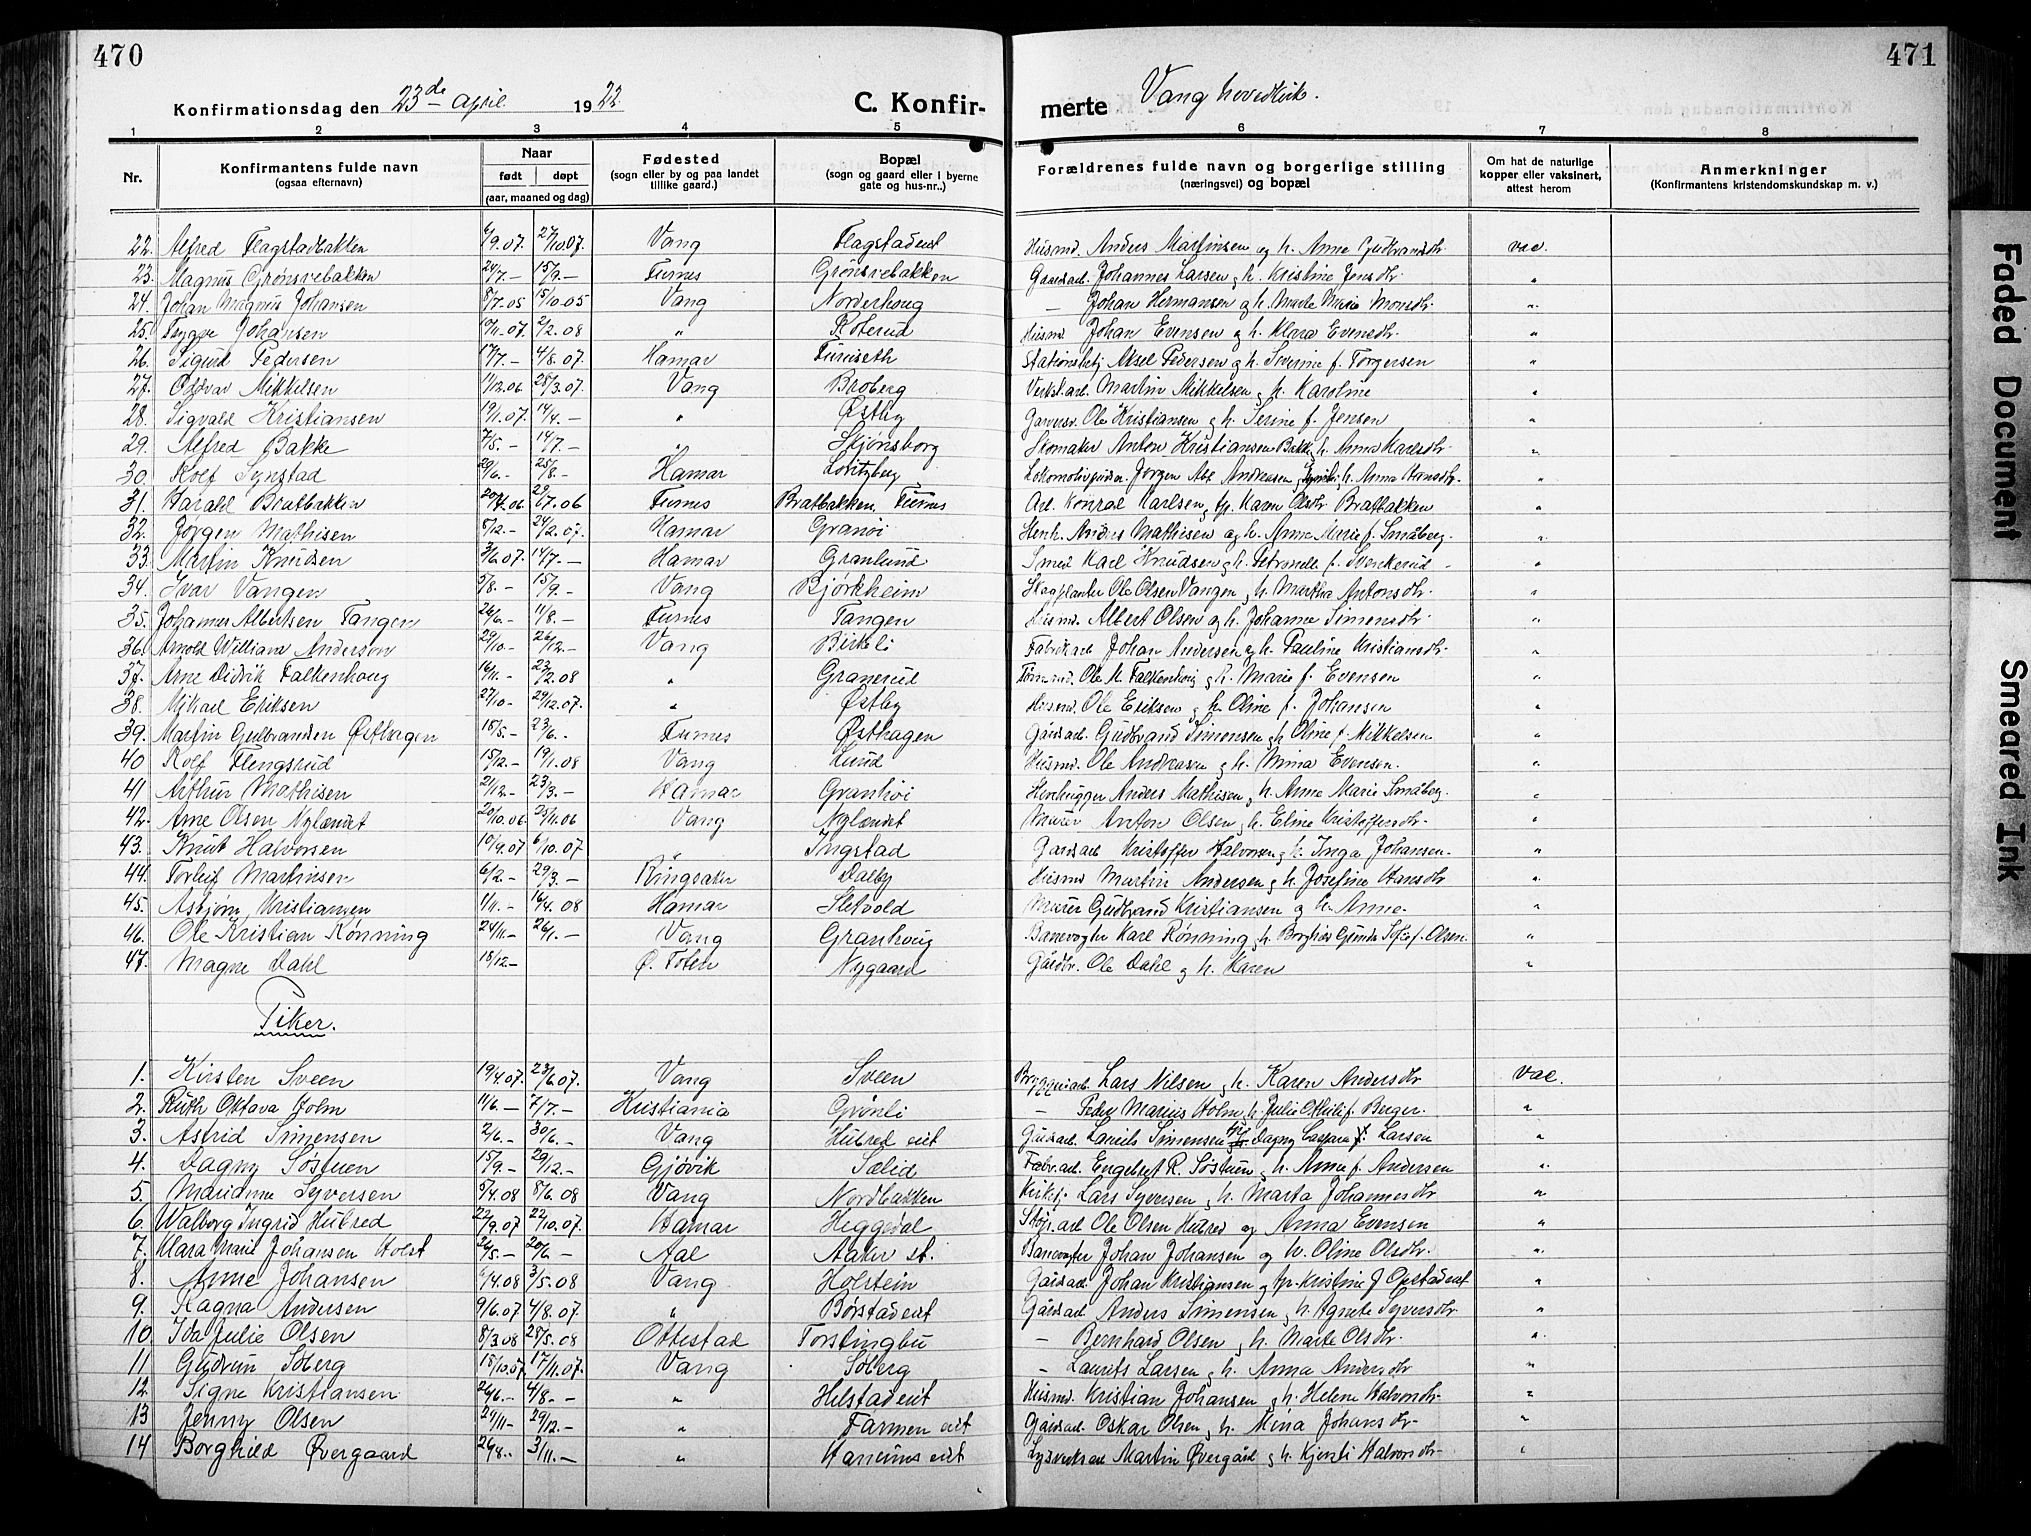 470
471
Konfirmationsdag den 23de april 1922
C. Konfir-
merte Vang hovedkirke.
1 2 3 4 5 6 7 8
Nr. Konfirmantens fulde navn (ogsaa efternavn) Naar født døpt (aar, maaned og dag) Fødested (sogn eller by og paa landet tillike gaard.) Bopæl (sogn og gaard eller i byerne gate og hus-nr..) Forældrenes fulde navn og borgerlige stilling (næringsvei) og bopæl Om hat de naturlige kopper eller vaksinert, attest herom Anmerkninger (Konfirmantens kristendomskundskap m. v.)
22. Alfred Flagstadbakken 6/9.07. 27/10.07. Vang Flagstadeit Husmd. Anders Martinsen og h. Anne Gudbrandsdtr. vac.
23. Magnus Grønsvebakken 24/7.- 15/9.- Furnes Grønsvebakken Gaardsarb. Johannes Larsen og h. Kristine Jensdtr. "
24. Johan Magnus Johansen 8/7.05 15/10.05 Vang Norderhoug — Johan Hermansen og h. Marte Marie Monsdtr. "
25. Trygve Johansen 19/11.07. 2/2.08 " Roterud Husmd. Johan Evensen og h. Klara Evensdtr. "
26. Sigurd Pedersen 17/7.- 4/8.07. Hamar Furuseth Stationsbetj. Aksel Pedersen og h. Severine f. Torgersen "
27. Oddvar Mikkelsen 11/12.06 28/3.07. Vang Broberg Verkst.arb. Martin Mikkelsen og h. Karoline "
28. Sigvald Kristiansen 19/1.07. 14/4.- " Østby Garversv. Ole Kristiansen og h. Serine f. Jensen "
29. Alfred Bakke 7/5.- 14/7.- " Skjønsborg Skomaker Anton Kristiansen Bakke og h. Anna Karlsdtr. "
30. Rolf Synstad 29/6.- 25/8.- Hamar Lovitzberg Lokomotivpudser Jørgen Alb. Andreasen Synstad og h. Anna Hansdtr. "
31. Harald Bratbakken 20/4.06 29/7.06 Furnes Bratbakken, Furnes Arb. Konrad Karlsen og h. Karen Olsdtr. Bratbakken "
32. Jørgen Mathisen 5/12.- 24/2.07. Hamar Granhøi Stenh. Anders Mathisen og h. Anne Marie f. Småberg. "
33. Martin Knudsen 3/6.07. 14/7.- Hamar Granlund Smed Karl Knudsen og h. Petronelle f. Svenkerud "
34. Ivar Vangen 5/8.- 15/9.- Vang Bjørkheim Skogplanter Ole Olsen Vangen og h. Martha Antonsdtr. "
35. Johannes Albertsen Tangen 26/6.- 11/8.- Furnes Tangen Husmd. Albert Olsen og h. Johanne Simensdtr. "
36. Arnold William Anderson 29/10.- 26/12.- Vang Birkeli Fabrikarb. Johan Andersen og h. Pauline Kristiansdtr. "
37. Arne Didrik Falkenhoug 16/11.- 23/2.08 " Granerud Tømmd. Ole M. Falkenhoug og h. Marie f. Evensen "
38. Mikael Eriksen 27/10.- 29/12.07. " Østby Husmd. Ole Eriksen og h. Oline f. Johansen "
39. Martin Gulbrandsen Østhagen 18/5.- 23/6.- Furnes Østhagen Gårdsarb. Gudbrand Simensen og h. Oline f. Mikkelsen "
40 Rolf Flengsrud 15/12.- 19/1.08 Vang Lund Husmd. Ole Andreasen og h. Mina Evensen. "
41 Arthur Mathisen 21/12.- 23/3.- Hamar Granhøi Stenhugger Anders Mathisen og h. Anne Marie Småberg. "
42. Arne Olsen Nylændet 20/10.06 25/11.06 Vang Nylændet Murer Anton Olsen og h. Eline Kristoffersdtr. "
43. Knut Halvorsen 10/9.07 6/10.07 " Ingstad Gardsarb Kristoffer Halvorsen og h. Inga Johansen. "
44. Torleif Martinsen 6/2- 29/3.- Ringsaker Dalby Husmd Martin Andersen og h. Josefine Hansdtr "
45. Asbjørn Kristiansen 1/11.- 16/4.08 Hamar Sletvold Murer Gudbrand Kristiansen og h. Anne. "
46. Ole Kristian Rønning 24/11- 26/1.- Vang Granhoug Banevogter Karl Rønning og h. Borghild Gunda Sofie f. Olsen. "
47. Magne Dahl 18/12- Ø. Toten Nygaard Gårdbr. Ole Dahl og h. Karen "
Piker.
1. Kirsten Sveen 19/4.07. 23/6.07. Vang Sveen Bryggeriarb. Lars Nilsen og h. Karen Andersdtr vac.
2. Ruth Oktava Holm 11/6.- 7/7.- Kristiania Grønli — Peder Marius Holm og h. Julie Othilie f. Berger. "
3. Astrid Simensen 2/6.- 30/6.- Vang Hubred eit Gårdsarb. Laurits Simensen og Dagny Caspara f. Larsen "
4. Dagny Søstuen 15/9.- 29/12.- Gjøvik Sælid Fabr.arb. Engebret R. Søstuen og h. Anne f. Andersen "
5. Marianne Syversen 5/4.08 8/6.08 Vang Nordbakken Kirketj. Lars Syversen og h. Marta Johannesdtr "
6. Valborg Ingrid Hubred 22/9.07 22/10.07. Hamar Heggedal Støp.arb Ole Olsen Hubred og Anna Evensen "
7. Klara Marie Johansen Holst 24/5.- 20/6- Aal Aaker st. Banevogter Johan Johansen og h. Oline Olsdtr. "
8. Anne Johansen 6/4.08 3/5.08 Vang Holstein Gårdsarb. Johan Kristiansen og h. Kristine J Opstadeit "
9. Ragna Andersen 9/6.07 4/8.07. " Børstad eit Gårdsarb Anders Simensen og h. Agnete Syversdtr. "
10. Ida Julie Olsen 8/3.08 28/5.08 Ottestad Torstingbu — Bernhard Olsen og h. Marte Olsdtr. "
11 Gudrun Søberg 18/10.07 17/11.07. Vang Søberg — Laurits Larsen og h. Anna Andersdtr "
12. Signe Kristiansen 26/6.- 4/8.- " Hilstadeit Husmd. Kristian Johansen og h. Helene Halvorsdtr. "
13 Jenny Olsen 27/11- 29/12.- " Farmen eit Gårdsarb. Oskar Olsen og h. Mina Johansdtr. "
14 Borghild Øvergaard 26/8.. 3/11.- " Haneumseit Lysverksarb Martin Øvergård og h. Kjersti Halvorsdtr. "
Faded Document
Smeared Ink